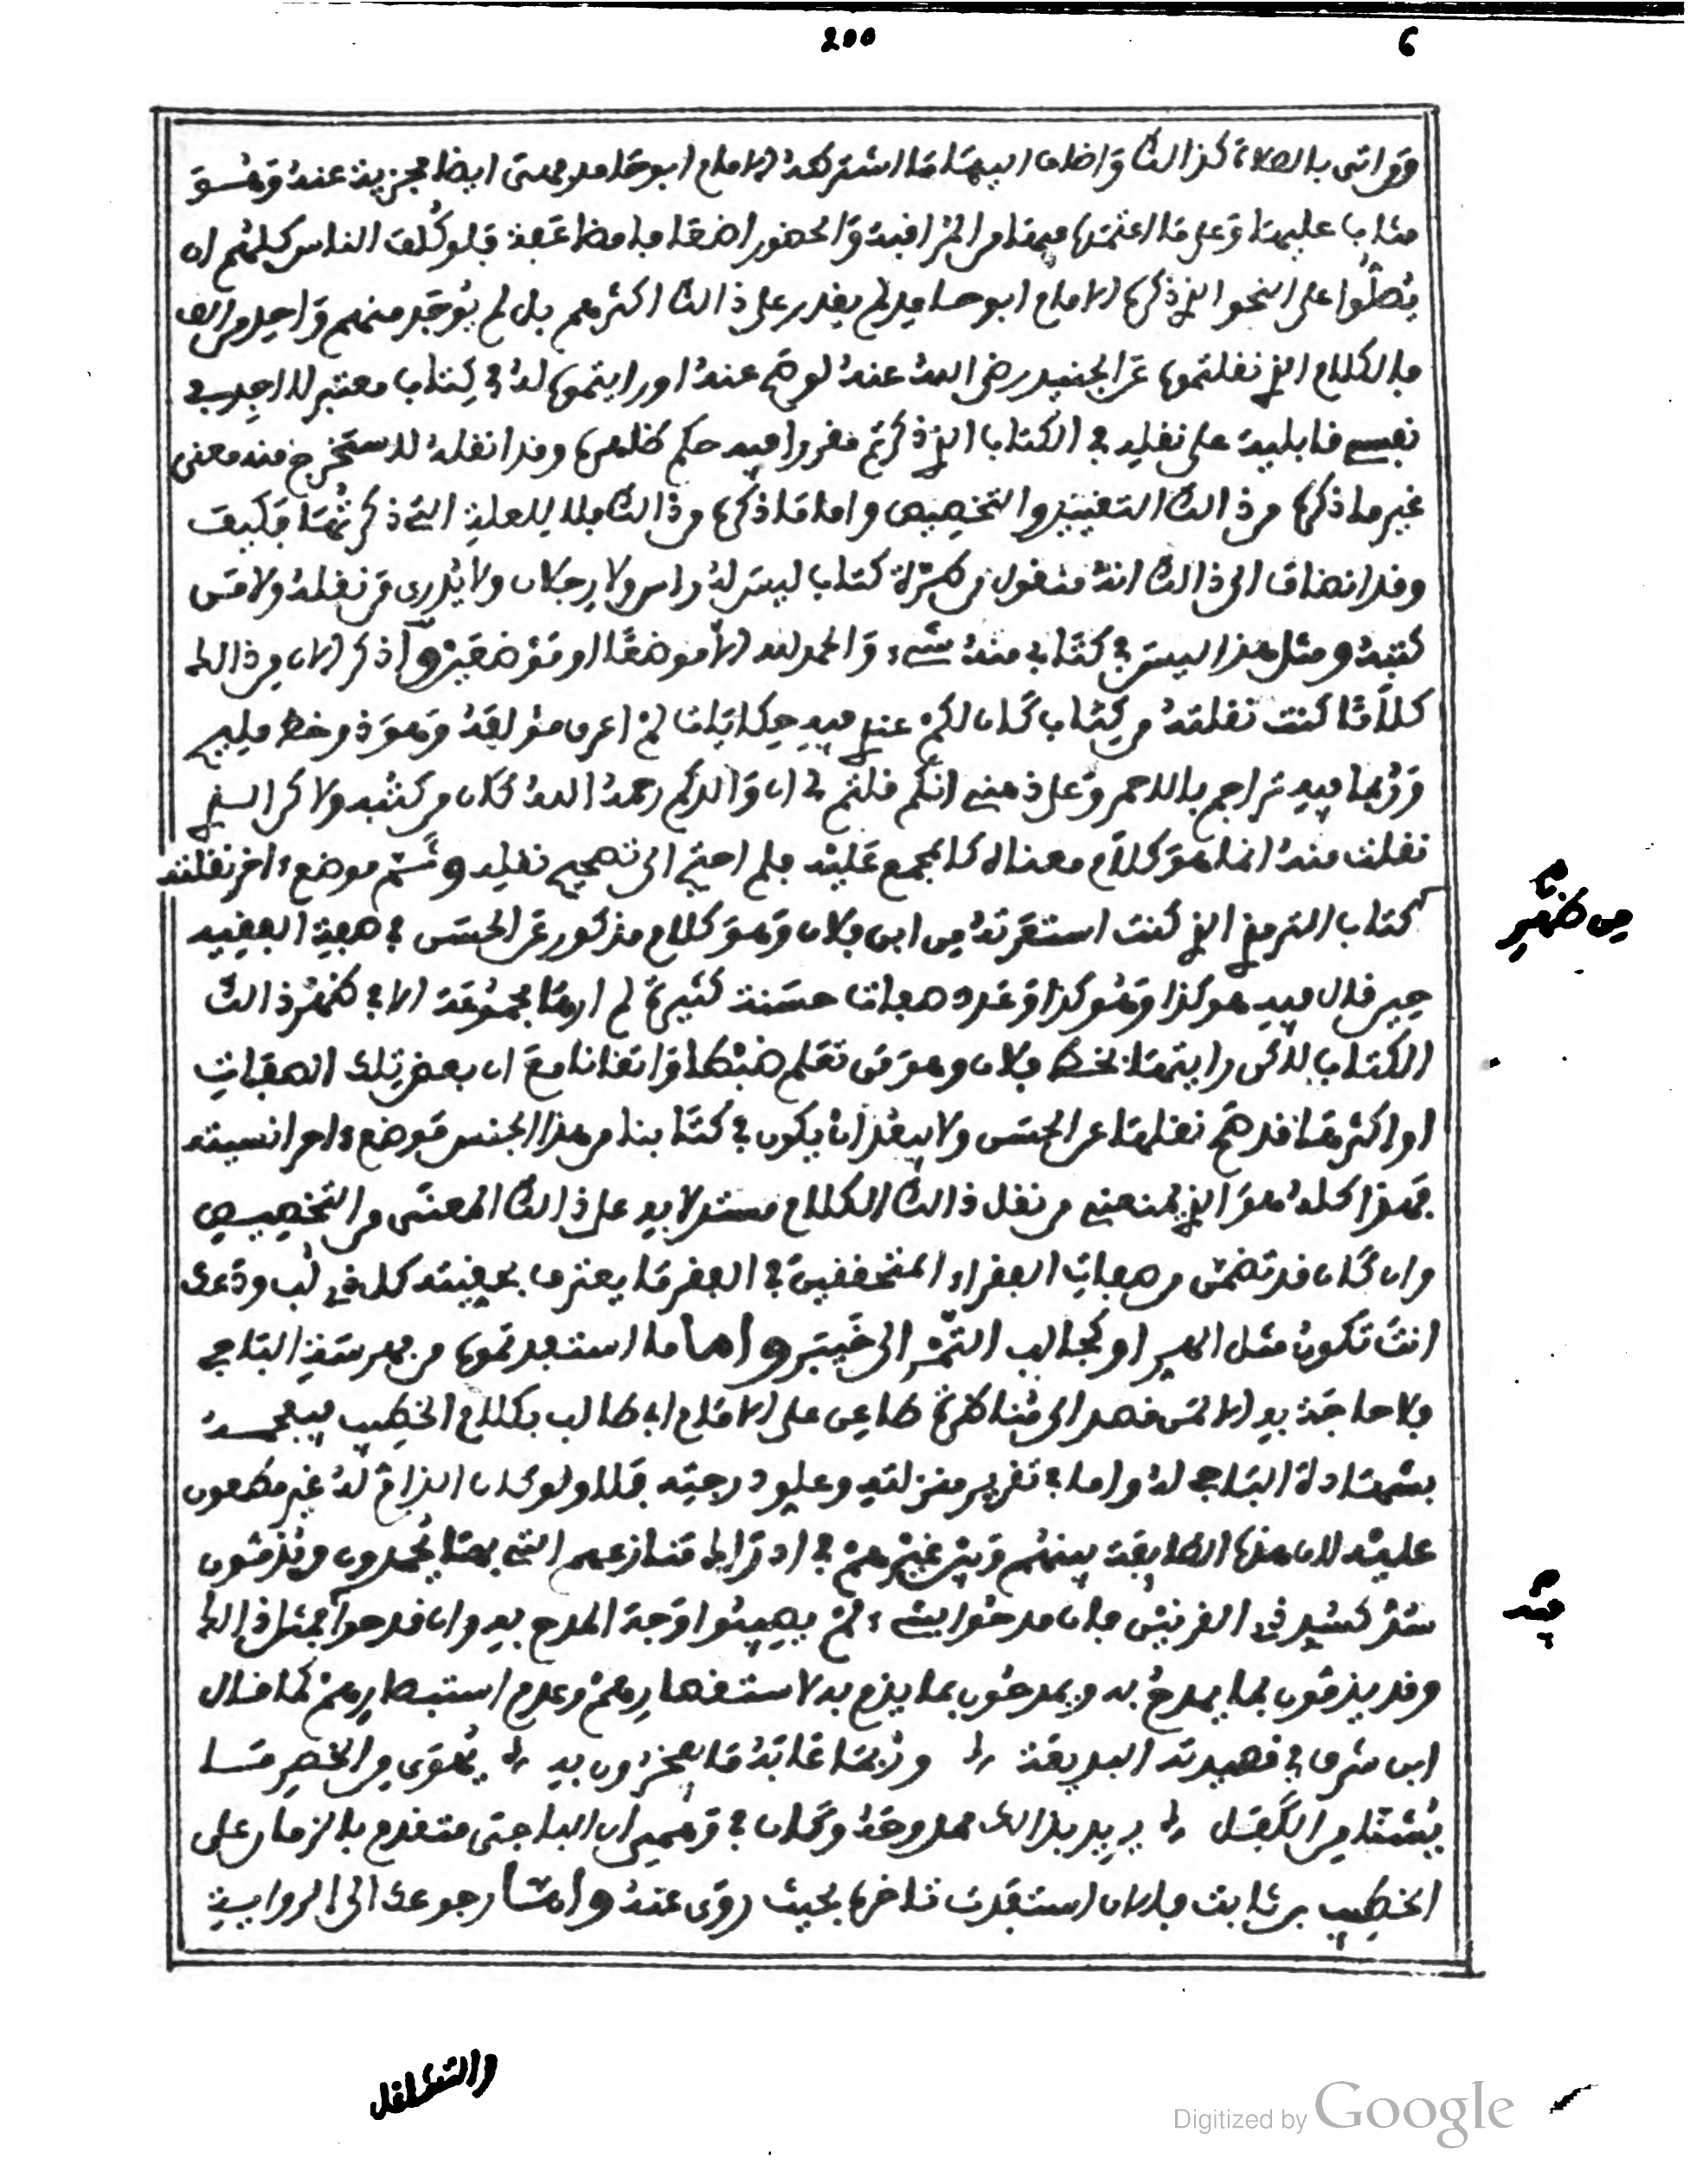 200
6
ومن اتى بالصلاة كذالك واضاف اليها ما اشترطه الامام ابو حامد فهي ايضا مجزية عنده وهو
مثاب عليها وعلى ما اعتمدها فيها من المراقبة والحضور اضعافا مضاعفة فلو كُلف الناس كلهم ان
يُصلُّوا على النحو الذي ذكره الامام ابو حامد لم يقدر على ذالك اكثرهم بل لم يُوجد منهم واحد من الف
فالكلام الذي نقلتموه عن الجنيد رضي الله عنه لو صح عنه او رايتموه له في كتاب معتبر لا اجد في
نفسي قابلية على نقله في الكتاب الذي ذكرتم مقررا فيه حكم ظاهره وقد انقله لاستخرج منه معنى
غير ما ذكره من ذالك التقييد والتخصيص واما ما ذكره من ذالك فلا للعلة التي ذكرتُها فكيف
وقد انضاف الى ذالك انه منقول من طرة كتاب ليس له راس ولا رجلان ولا يُدرى من نقله ولا من
كتبه ومثل هذا ليس في كتابي منه شيء والحمد لله الا موضعًا او موضعين واذكر الان من ذالك
كلامًا كنت نقلته من كتاب كان لكم عندي فيه حكايات لم اعرف مؤلفه وهو ذو خط مليح
وربما فيه تراجم بالاحمر وعلى ذهني انكم قلتم لي ان والدكم رحمه الله كان من كتبه ولاكن الذي
نقلت منه انما هو كلام معناه كالمجمع عليه فلم احتج الى تصحيح نقله وثَم موضع ءاخر نقلته
من ظهر
كتاب الترمذي الذي كنت استعرته من ابن فلان وهو كلام مذكور عن الحسن في صفة الفقيه
حين قال فيه هو كذا وهو كذا وعدد صفات حسنة كثيرة لم ارها مجموعة الا في ظهر ذالك
الكتاب لاكن رايتها بخط فلان وهو من تعلم ضبطا واتقانا مع ان بعض تلك الصفات
او اكثرها قد صح نقلها عن الحسن ولا يبعد ان يكون في كتابنا من هذا الجنس موضع ءاخر انسيته
فهذا كله هو الذي يمنعني من نقل ذالك الكلام مستدلا به على ذالك المعنى من التخصيص
وان كان قد تضمن من صفات الفقراء المتحققين في الفقر ما يعترف بحقيته كل ذي لب ودعك
انت تكون مثل الصير او كجالب التمر الى خيبر واما ما استبعدتموه من مدرسة الباجي
فلا حاجة به الا لمن قصد الى مناظرة طاعن على الامام ابي طالب بكلام الخطيب فيعمد
بشهادة الباجي له واما في تقرير منزلته وعلو درجته فلا ولو كان الذام له غير مطعون
فيه
عليه لان هذه الطايفة بينهم وبين غيرهم في ادراك منازعهم التي بها يُحمدون ويُذمون
ستر كسد ذي القرنين فان مدحوا بشيء لم يصيبوا وجه المدح به وان قدحوا فمثل ذالك
وقد يذمون بما يمدح به ويمدحون بما يذم به لاستقصارهم وعدم استبصارهم كما قال
ابن شرف في قصيدته البديعة وربما عابه ما يفخرون به يهوى من الخصر ما
يُشنا من الكفل يريد بذالك ممدوحه وكان في وهمي ان الباجي متقدم بالزمان على
الخطيب بن ثابت فالان استفدت تاخره بحيث روى عنه واما رجوعك الى الرواية
والتشاغل
Digitized by Google